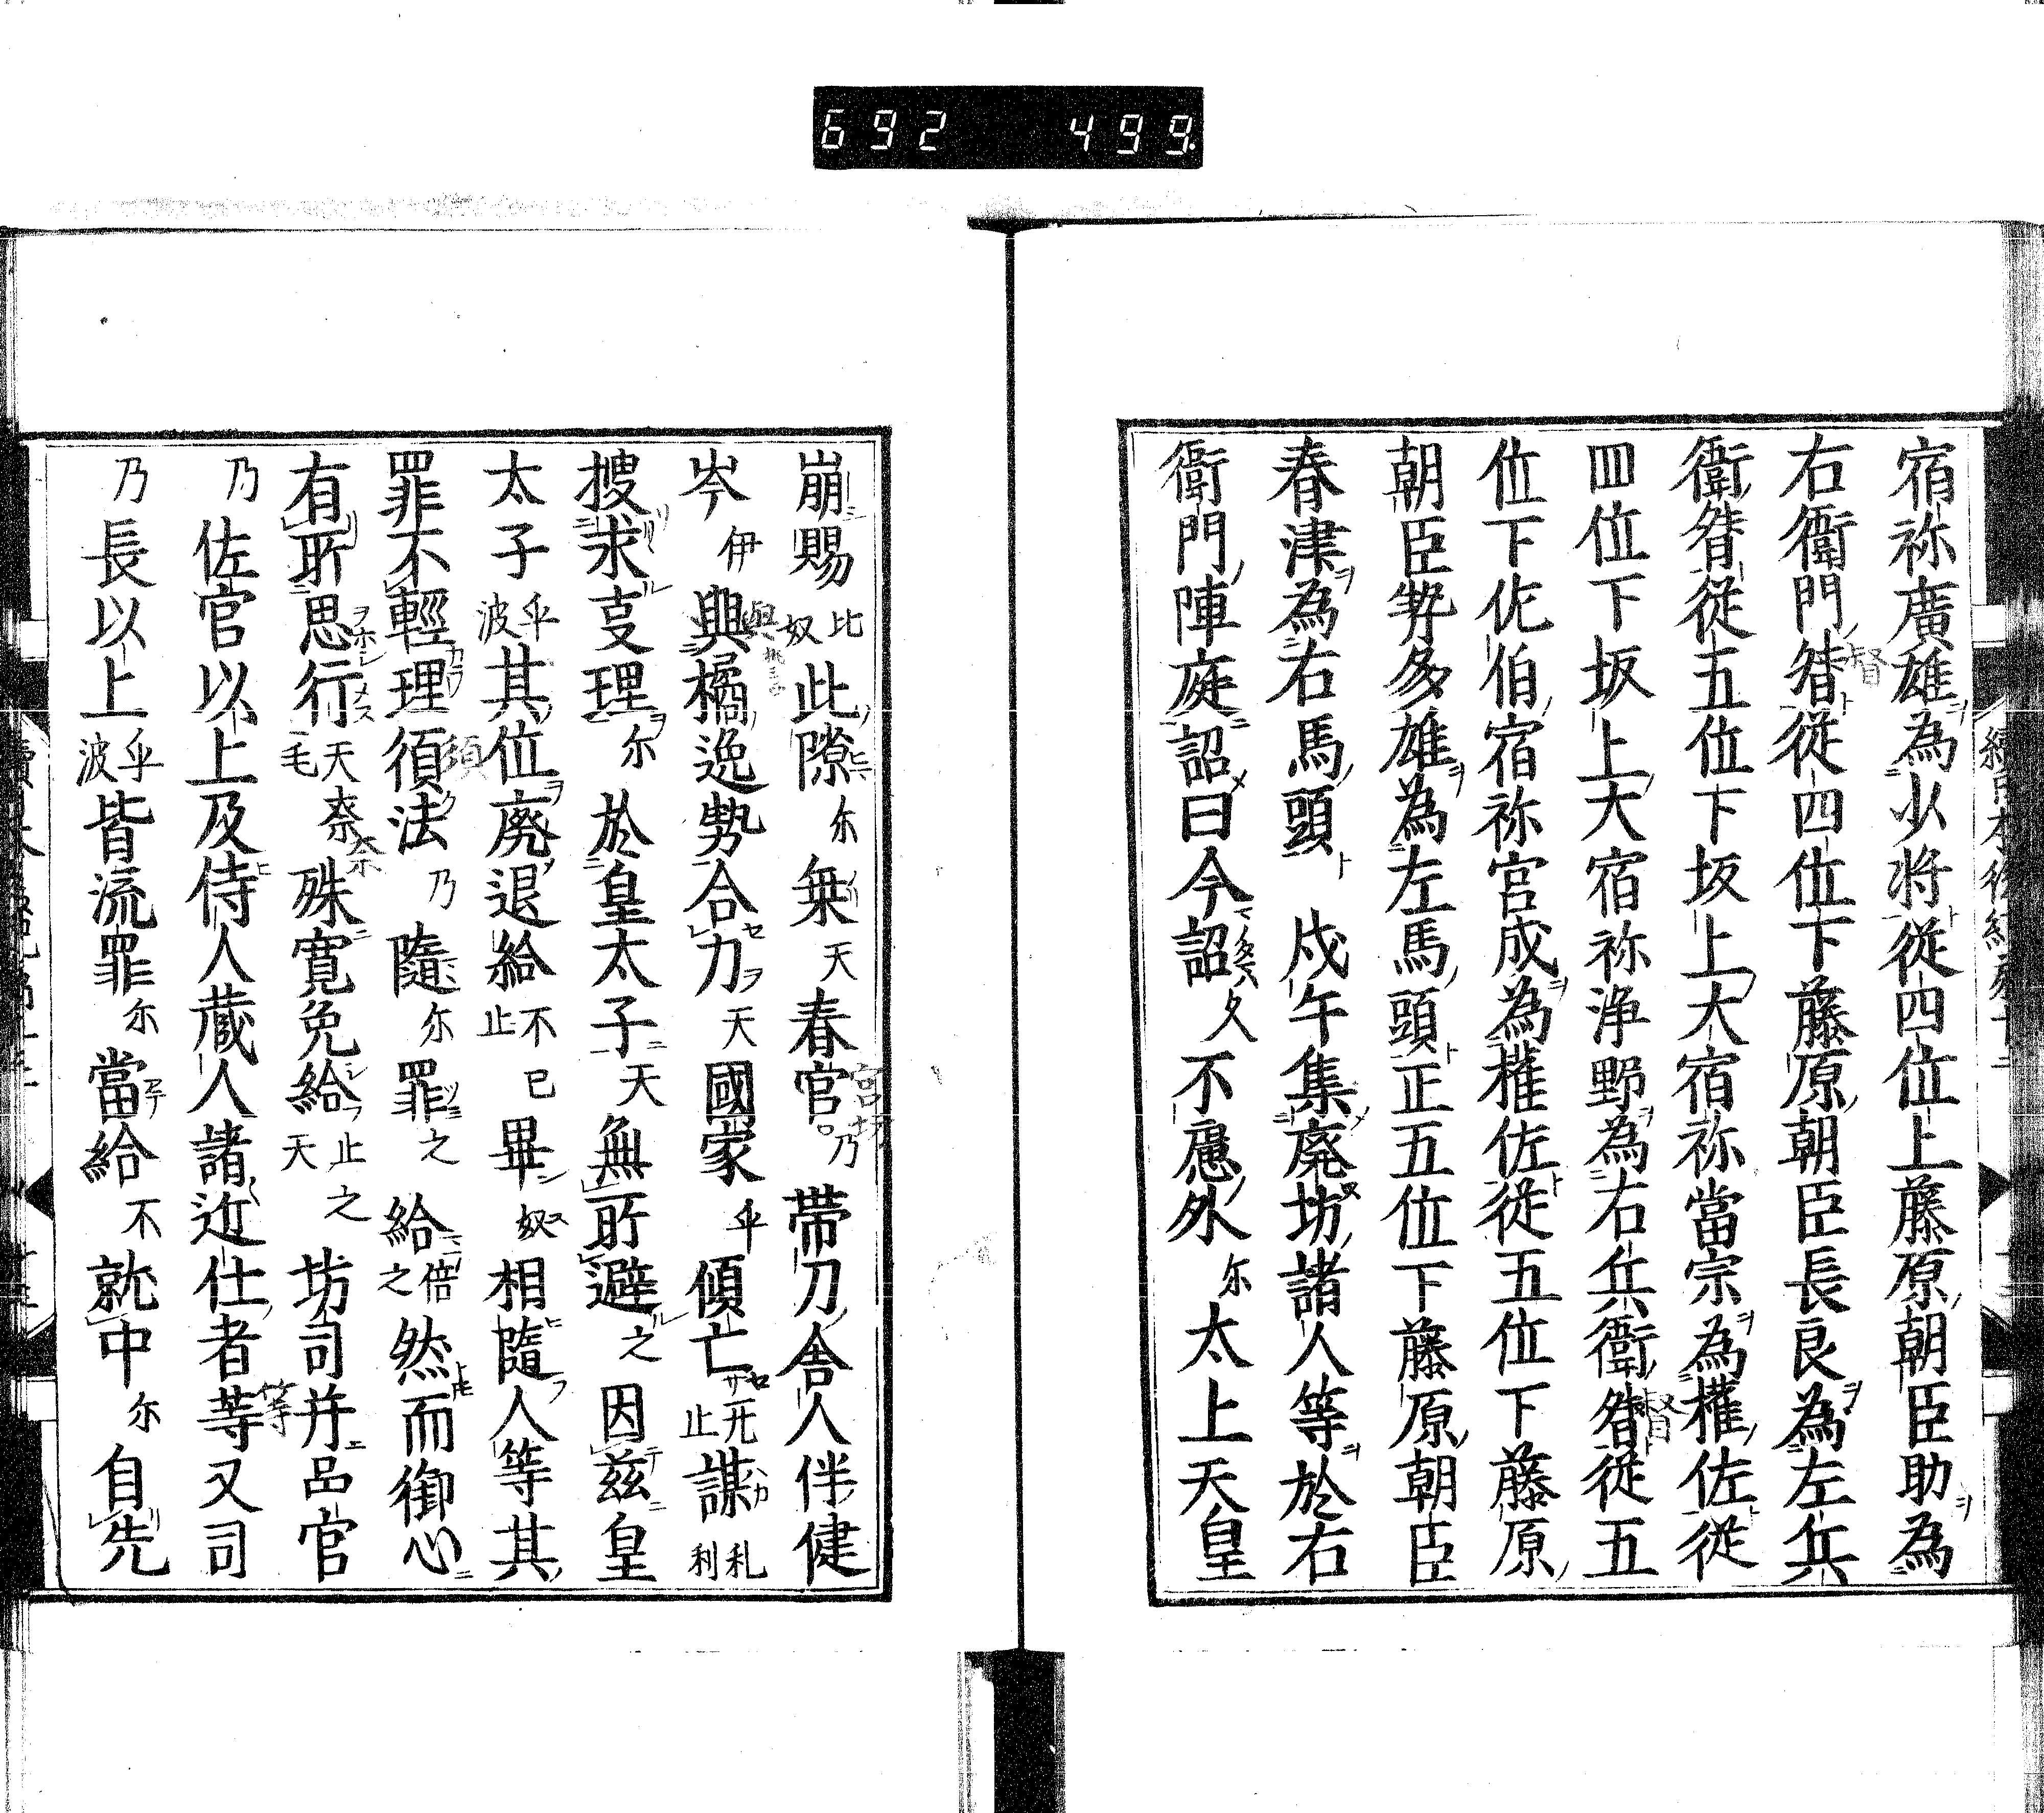 692 499
宿祢廣雄為少将従四位上藤原朝臣助為
右衛門督従四位下藤原朝臣長良為左兵
衛督従五位下坂上大宿祢當宗為権佐従
四位下坂上大宿祢浄野為右兵衛督従五
位下佐伯宿祢宮成為権佐従五位下藤原
朝臣勢多雄為左馬頭正五位下藤原朝臣
春津為右馬頭 戊午集廃坊諸人等於右
衛門陣庭詔曰今詔久不慮外尓太上天皇
崩賜比奴此隙尓無天春官乃帯刀舎人伴健
岑伊與橘逸勢合力天國家乎傾亡无止謀礼利
捜求支理尓於皇太子天無所避之因茲皇
太子乎波其位廃退給不止已畢奴相隨人等其
罪不輕理須法乃隨尓罪之給倍之然而御心
有所思行天毛奈殊寛免給止之天之坊司并品官
乃佐官以上及侍人蔵人諸近仕者等又司
乃長以上乎波皆流罪尓當給不就中尓自先